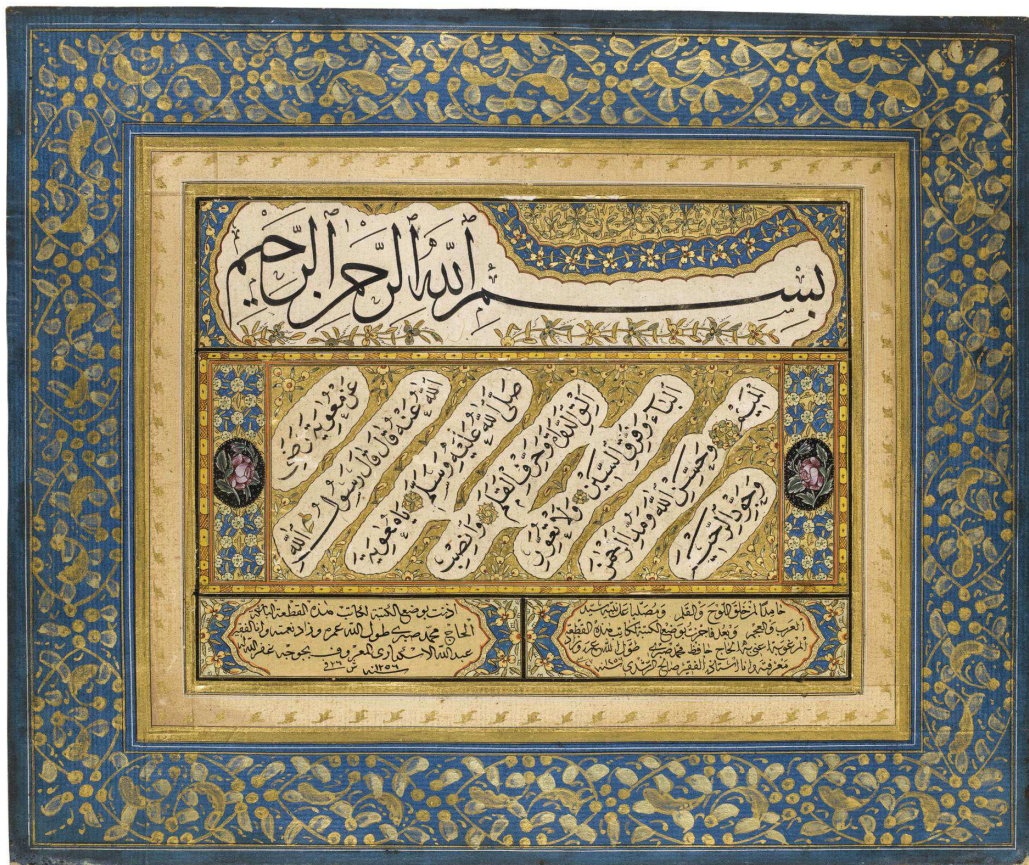 بسم الله الرحمن الرحيم
عن معوية رضى
الله عنه قال قال رسول الله
صلى الله عليه وسلم يا معوية
الق الدواة وحرف القلم وانصب
الباء وفرق السين ولا تغور
الميم وحسن الله ومد الرحمن
وجود الرحيم
حامدا لمن خلق اللوح والقلم ومصليا على نبيه سيد
العرب والعجم وبعد فاجزت بوضع الكتبة لكاتب هذه القطعة
المرغوبة اعنى به الحاج حافظ محمد صبرى طول الله عمره وزاد
معرفته وانا استاذه الفقير صالح الرشدى
اذنت بوضع الكتبة لكاتب هذه القطعة
الحاج محمد صبرى طول الله عمره وزاد نعمته وانا الفقير
عبد الله المعروف غفر الله له
سنة ١٢٥٦